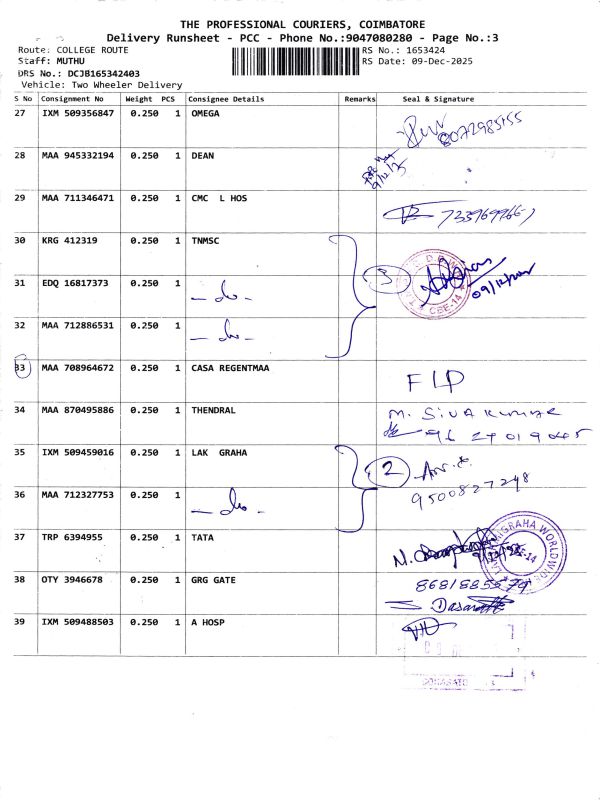 THE PROFESSIONAL COURIERS, COIMBATORE
Delivery Runsheet - PCC - Phone No.:9047080280 - Page No.:3
Route: COLLEGE ROUTE
RS No.: 1653424
Staff: MUTHU
RS Date: 09-Dec-2025
DRS No.: DCJB165342403
Vehicle: Two Wheeler Delivery
S No Consignment No Weight PCS Consignee Details Remarks Seal & Signature
27 IXM 509356847 0.250 1 OMEGA 8072985155
28 MAA 945332194 0.250 1 DEAN 9/12/25
29 MAA 711346471 0.250 1 CMC L HOS
30 KRG 412319 0.250 1 TNMSC
31 EDQ 16817373 0.250 1 - do - 3 CBE-14
32 MAA 712886531 0.250 1 - do -
33 MAA 708964672 0.250 1 CASA REGENTMAA FLP
34 MAA 870495886 0.250 1 THENDRAL M. SIVAKUMAR
96 27019045
35 IXM 509459016 0.250 1 LAK GRAHA 2
9500827248
36 MAA 712327753 0.250 1 - do -
37 TRP 6394955 0.250 1 TATA
38 OTY 3946678 0.250 1 GRG GATE
39 IXM 509488503 0.250 1 A HOSP